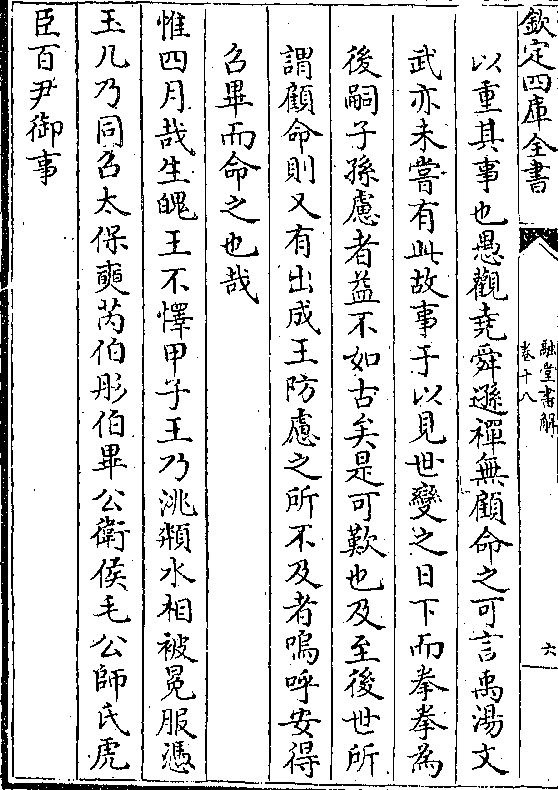 欽定四庫全書
融堂書解
卷十八
六
以重其事也愚觀堯舜遜禪無顧命之可言禹湯文
武亦未嘗有此故事于以見世變之日下而拳拳為
後嗣子孫慮者益不如古矣是可歎也及至後世所
謂顧命則又有出成王防慮之所不及者嗚呼安得
召畢而命之也哉
惟四月哉生魄王不懌甲子王乃洮頮水相被冕服憑
玉几乃同召太保奭芮伯彤伯畢公衛侯毛公師氏虎
臣百尹御事